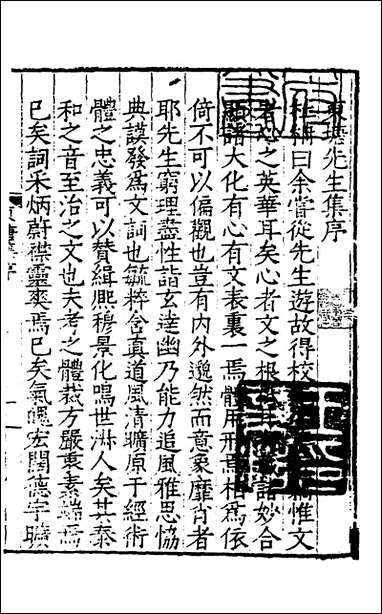 東塘先生集序
杜柟曰余嘗從先生遊故得校惟文
者心之英華耳矣心者文之根諸妙合
顯諸大化有心有文表裏一焉體用形焉相為依
倚不可以偏觀也豈有內外邈然而意象靡肖者
耶先生窮理盡性詣玄達幽乃能力追風雅思恊
典謨發爲文詞也毓粹含真道風清曠原于經術
體之忠義可以賛緝熈穆景化鳴世淋人矣其泰
和之音至治之文也夫考之體裁方嚴衷素端焉
已矣詞采炳蔚襟靈爽焉已矣氣魄宏闊德宇曠